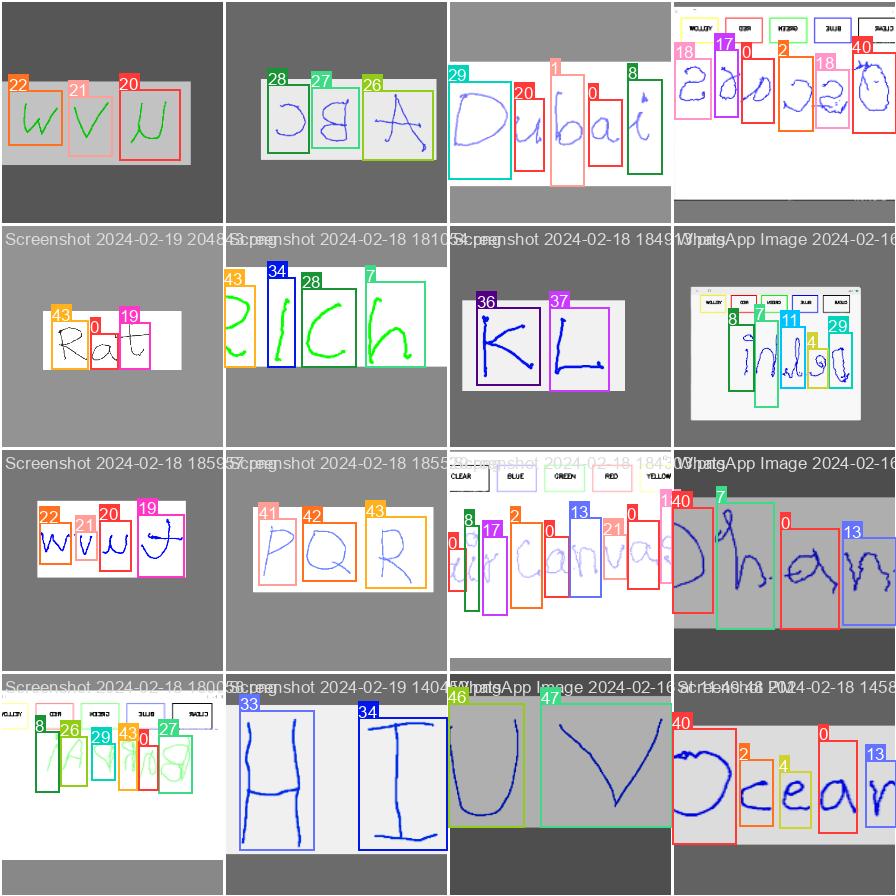 22 21 20
W V U
28 27 26
C B A
29 20 1 0 8
Dubai
YELLOW RED GREEN BLUE CLEAR
18 17 0 2 18 40
Screenshot 2024-02-19 204843.png
43 0 19
Rat
Screenshot 2024-02-18 181054.png
43 34 28 7
RICh
Screenshot 2024-02-18 184913.png
36 37
K L
WhatsApp Image 2024-02-16
YELLOW RED GREEN BLUE CLEAR
8 7 11 4 29
Screenshot 2024-02-18 185957.png
22 21 20 19
w v u t
Screenshot 2024-02-18 185520.png
41 42 43
P Q R
Screenshot 2024-02-18 184303.png
CLEAR BLUE GREEN RED YELLOW
0 8 17 2 0 13 21 0 18
air Canvas
WhatsApp Image 2024-02-16
40 7 0 13
Dhan
Screenshot 2024-02-18 180058.png
YELLOW RED GREEN BLUE CLEAR
8 26 29 43 0 27
Screenshot 2024-02-19 140452.png
33 34
H I
WhatsApp Image 2024-02-16 at 11.40.48 PM
46 47
U V
Screenshot 2024-02-18 1458
40 2 4 0 13
Ocean